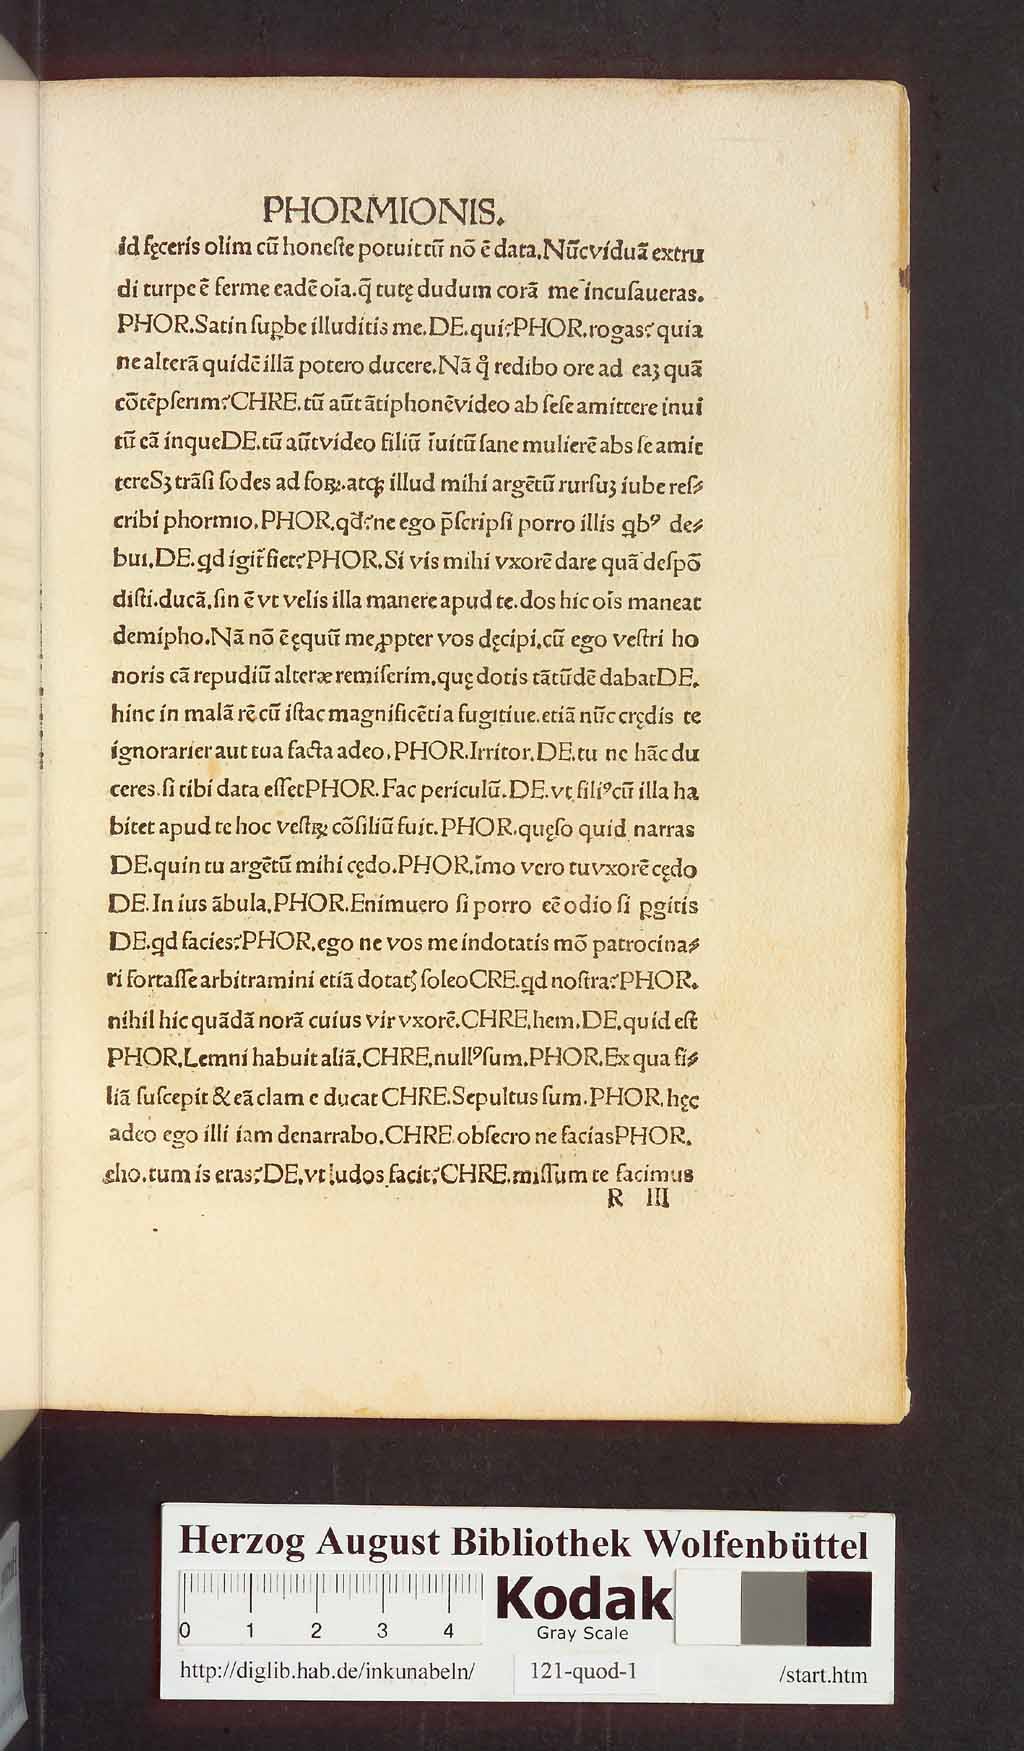 PHORMIONIS.
id fęceris olim cū honeſte potuit tū nō ē data. Nūc viduā extru
di turpe ē ferme eadē oīa. q̄ tutę dudum corā me incuſaueras.
PHOR. Satin ſuꝑbe illuditis me. DE. qui? PHOR. rogas? quia
ne alterā quidē illā potero ducere. Nā q̊ redibo ore ad eaꝫ quā
cōtēpſerim? CHRE. tū aūt ātiphonē video ab ſeſe amittere inui
tū eā inque DE. tū aūt video filiū īuitū ſane mulierē abs ſe amit
tere Sꝫ trāſi ſodes ad foꝝ. atqꝫ illud mihi argētū rurſuꝫ iube reſ⸗
cribi phormio. PHOR. qd̄? ne ego p̄ſcripſi porro illis qbꝰ de⸗
bui. DE. qd igit̄ fiet? PHOR. Si vis mihi vxorē dare quā deſpō
diſti. ducā. ſin ē vt velis illa manere apud te. dos hic oīs maneat
demipho. Nā nō ē ęquū me ꝓpter vos dęcipi. cū ego veſtri ho
noris cā repudiū alteræ remiſerim. quę dotis tātūdē dabat DE.
hinc in malā rē cū iſtac magnificētia fugitiue. etiā nūc crędis te
ignorarier aut tua facta adeo. PHOR. Irritor. DE. tu ne hāc du
ceres. ſi tibi data eſſet PHOR. Fac periculū. DE. vt filiꝰ cū illa ha
bitet apud te hoc veſtꝝ cōſiliū fuit. PHOR. quęſo quid narras
DE. quin tu argētū mihi cędo. PHOR. īmo vero tu vxorē cędo
DE. In ius ābula. PHOR. Enimuero ſi porro eē odio ſi ꝑgitis
DE. qd facies? PHOR. ego ne vos me indotatis mō patrocina⸗
ri fortaſſe arbitramini etiā dotatꝭ ſoleo CRE. qd noſtra? PHOR.
nihil hic quādā norā cuius vir vxorē. CHRE. hem. DE. quid eſt
PHOR. Lemni habuit aliā. CHRE. nullꝰ ſum. PHOR. Ex qua fi⸗
liā ſuſcepit & eā clam e ducat CHRE. Sepultus ſum. PHOR. hęc
adeo ego illi iam denarrabo. CHRE. obſecro ne facias PHOR.
eho. tum is eras? DE. vt ludos facit? CHRE. miſſum te facimus
R III
Herzog August Bibliothek Wolfenbüttel
0 1 2 3 4
Kodak
Gray Scale
http://diglib.hab.de/inkunabeln/ 121-quod-1 /start.htm